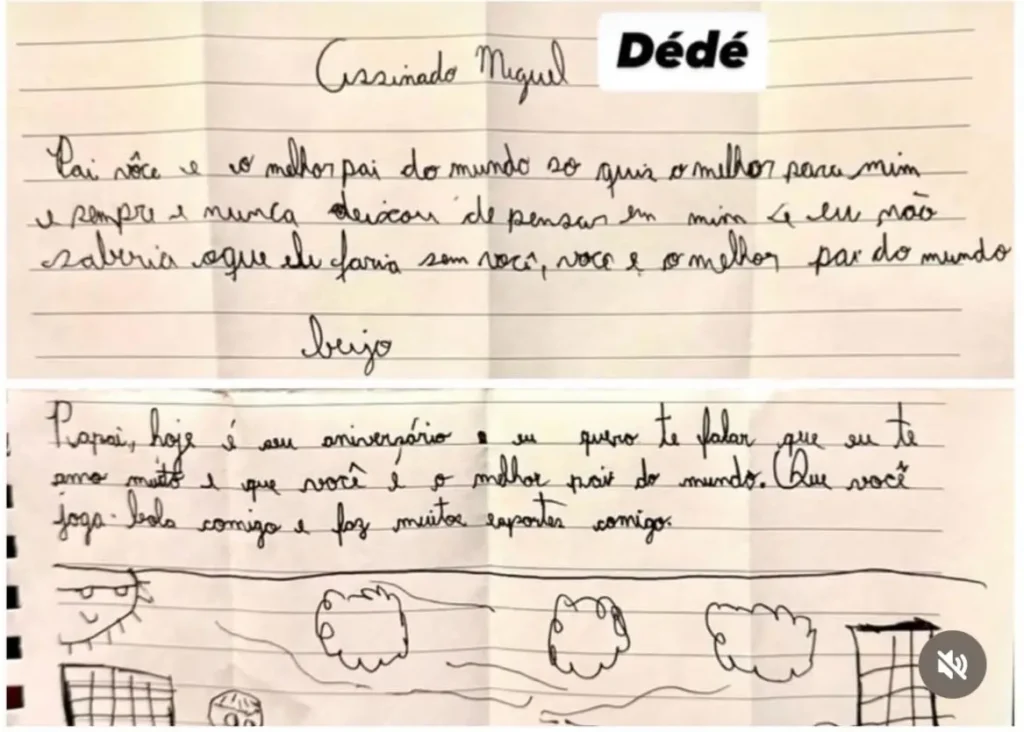 Assinado Miguel
Dédé
Pai vôce e o melhor pai do mundo so quis o melhor para mim
e sempre e nunca deixou de pensar em mim e eu não
saberia oque eu faria sem você, voce e o melhor pai do mundo
beijo
Papai, hoje é seu aniversário e eu quero te falar que eu te
amo muito e que você é o melhor pai do mundo. Que você
joga bola comigo e faz muitos esportes comigo.